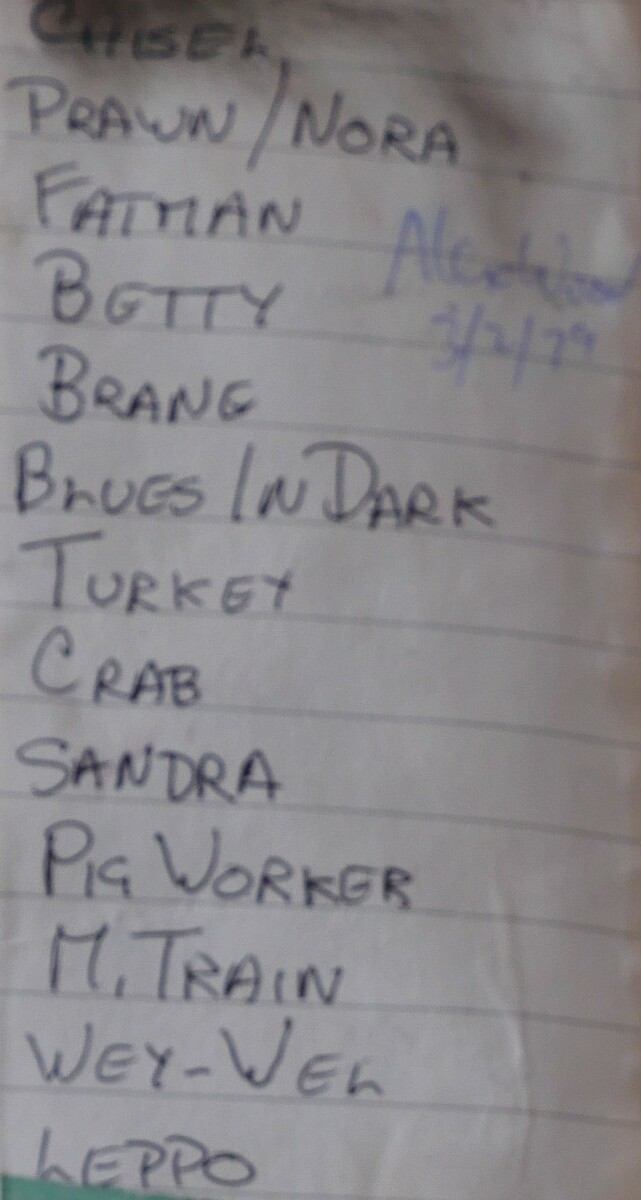 CHISEL,
PRAWN / NORA
FATMAN
BETTY
Alex Wood
3/2/79
BRANE
BLUES IN DARK
TURKEY
CRAB
SANDRA
PIG WORKER
M. TRAIN
WEY-WEL
LEPPO